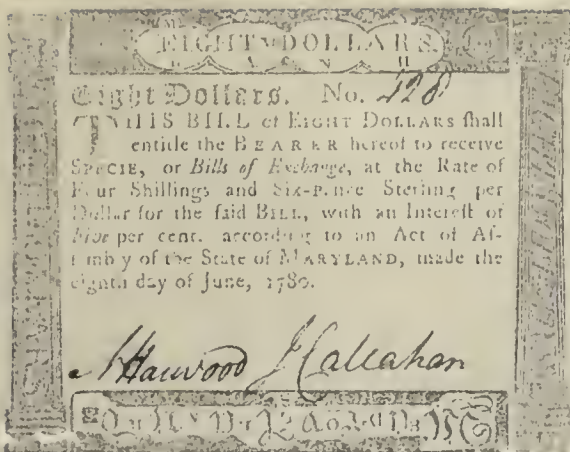 EIGHT DOLLARS
Eight Dollars. No. 428
THIS BILL of EIGHT DOLLARS ſhall
entitle the BEARER hereof to receive
SPECIE, or Bills of Exchange, at the Rate of
Four Shillings and Six-pence Sterling per
Dollar for the ſaid BILL, with an Intereſt of
Five per cent. according to an Act of Aſ-
ſembly of the State of MARYLAND, made the
eighth day of June, 1780.
Harwood J Callahan